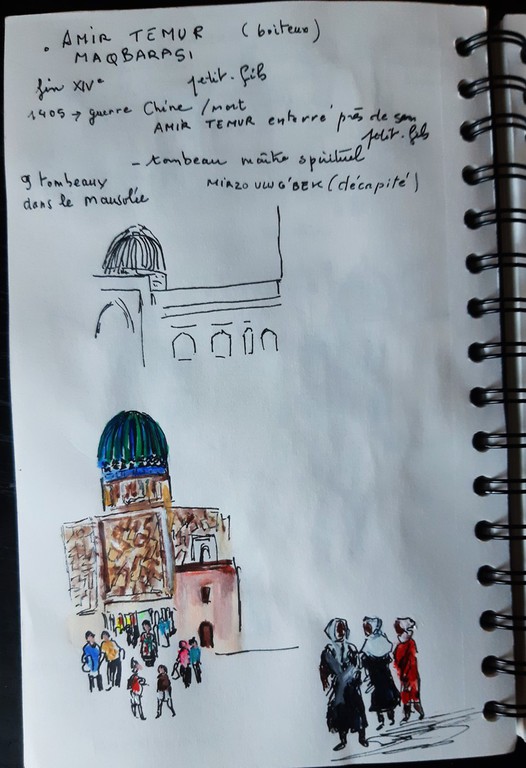 . AMIR TEMUR (boiteux)
MAQBARASI
fin XIVe petit-fils
1405 → guerre Chine / mort
AMIR TEMUR enterré près de son
petit-fils
- tombeau maître spirituel
9 tombeaux MIRZO ULUG'BEK (décapité)
dans le Mausolée